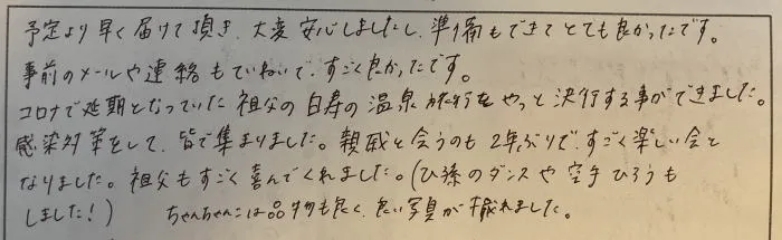 予定より早く届けて頂き、大変安心しましたし、準備もできてとても良かったです。
事前のメールや連絡もていねいで、すごく良かったです。
コロナで延期となっていた祖父の白寿の温泉旅行をやっと決行する事ができました。
感染対策をして、皆で集まりました。親戚と会うのも2年ぶりで、すごく楽しい会と
なりました。祖父もすごく喜んでくれました。(ひ孫のダンスや空手ひろうも
しました!) ちゃんちゃんこは品物も良く、良い写真が撮れました。